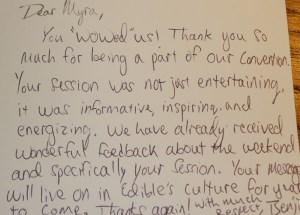 Dear Myra,
You "wowed" us! Thank you so
much for being a part of our Convention.
Your session was not just entertaining,
it was informative, inspiring, and
energizing. We have already received
wonderful feedback about the weekend
and specifically your session. Your message
will live on in Edible's culture for
to come. Thanks again! with much
Respect,